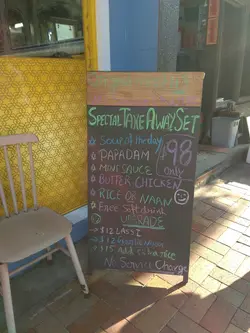 SPECIAL TAKE AWAY SET
Soup of the day
PAPADAM
MINT SAUCE
BUTTER CHICKEN
RICE OR NAAN
Free Soft drink
$98
only
UPGRADE
+ $12 LASSI
+ $12
+ $15 Add extra rice
No Service Charge